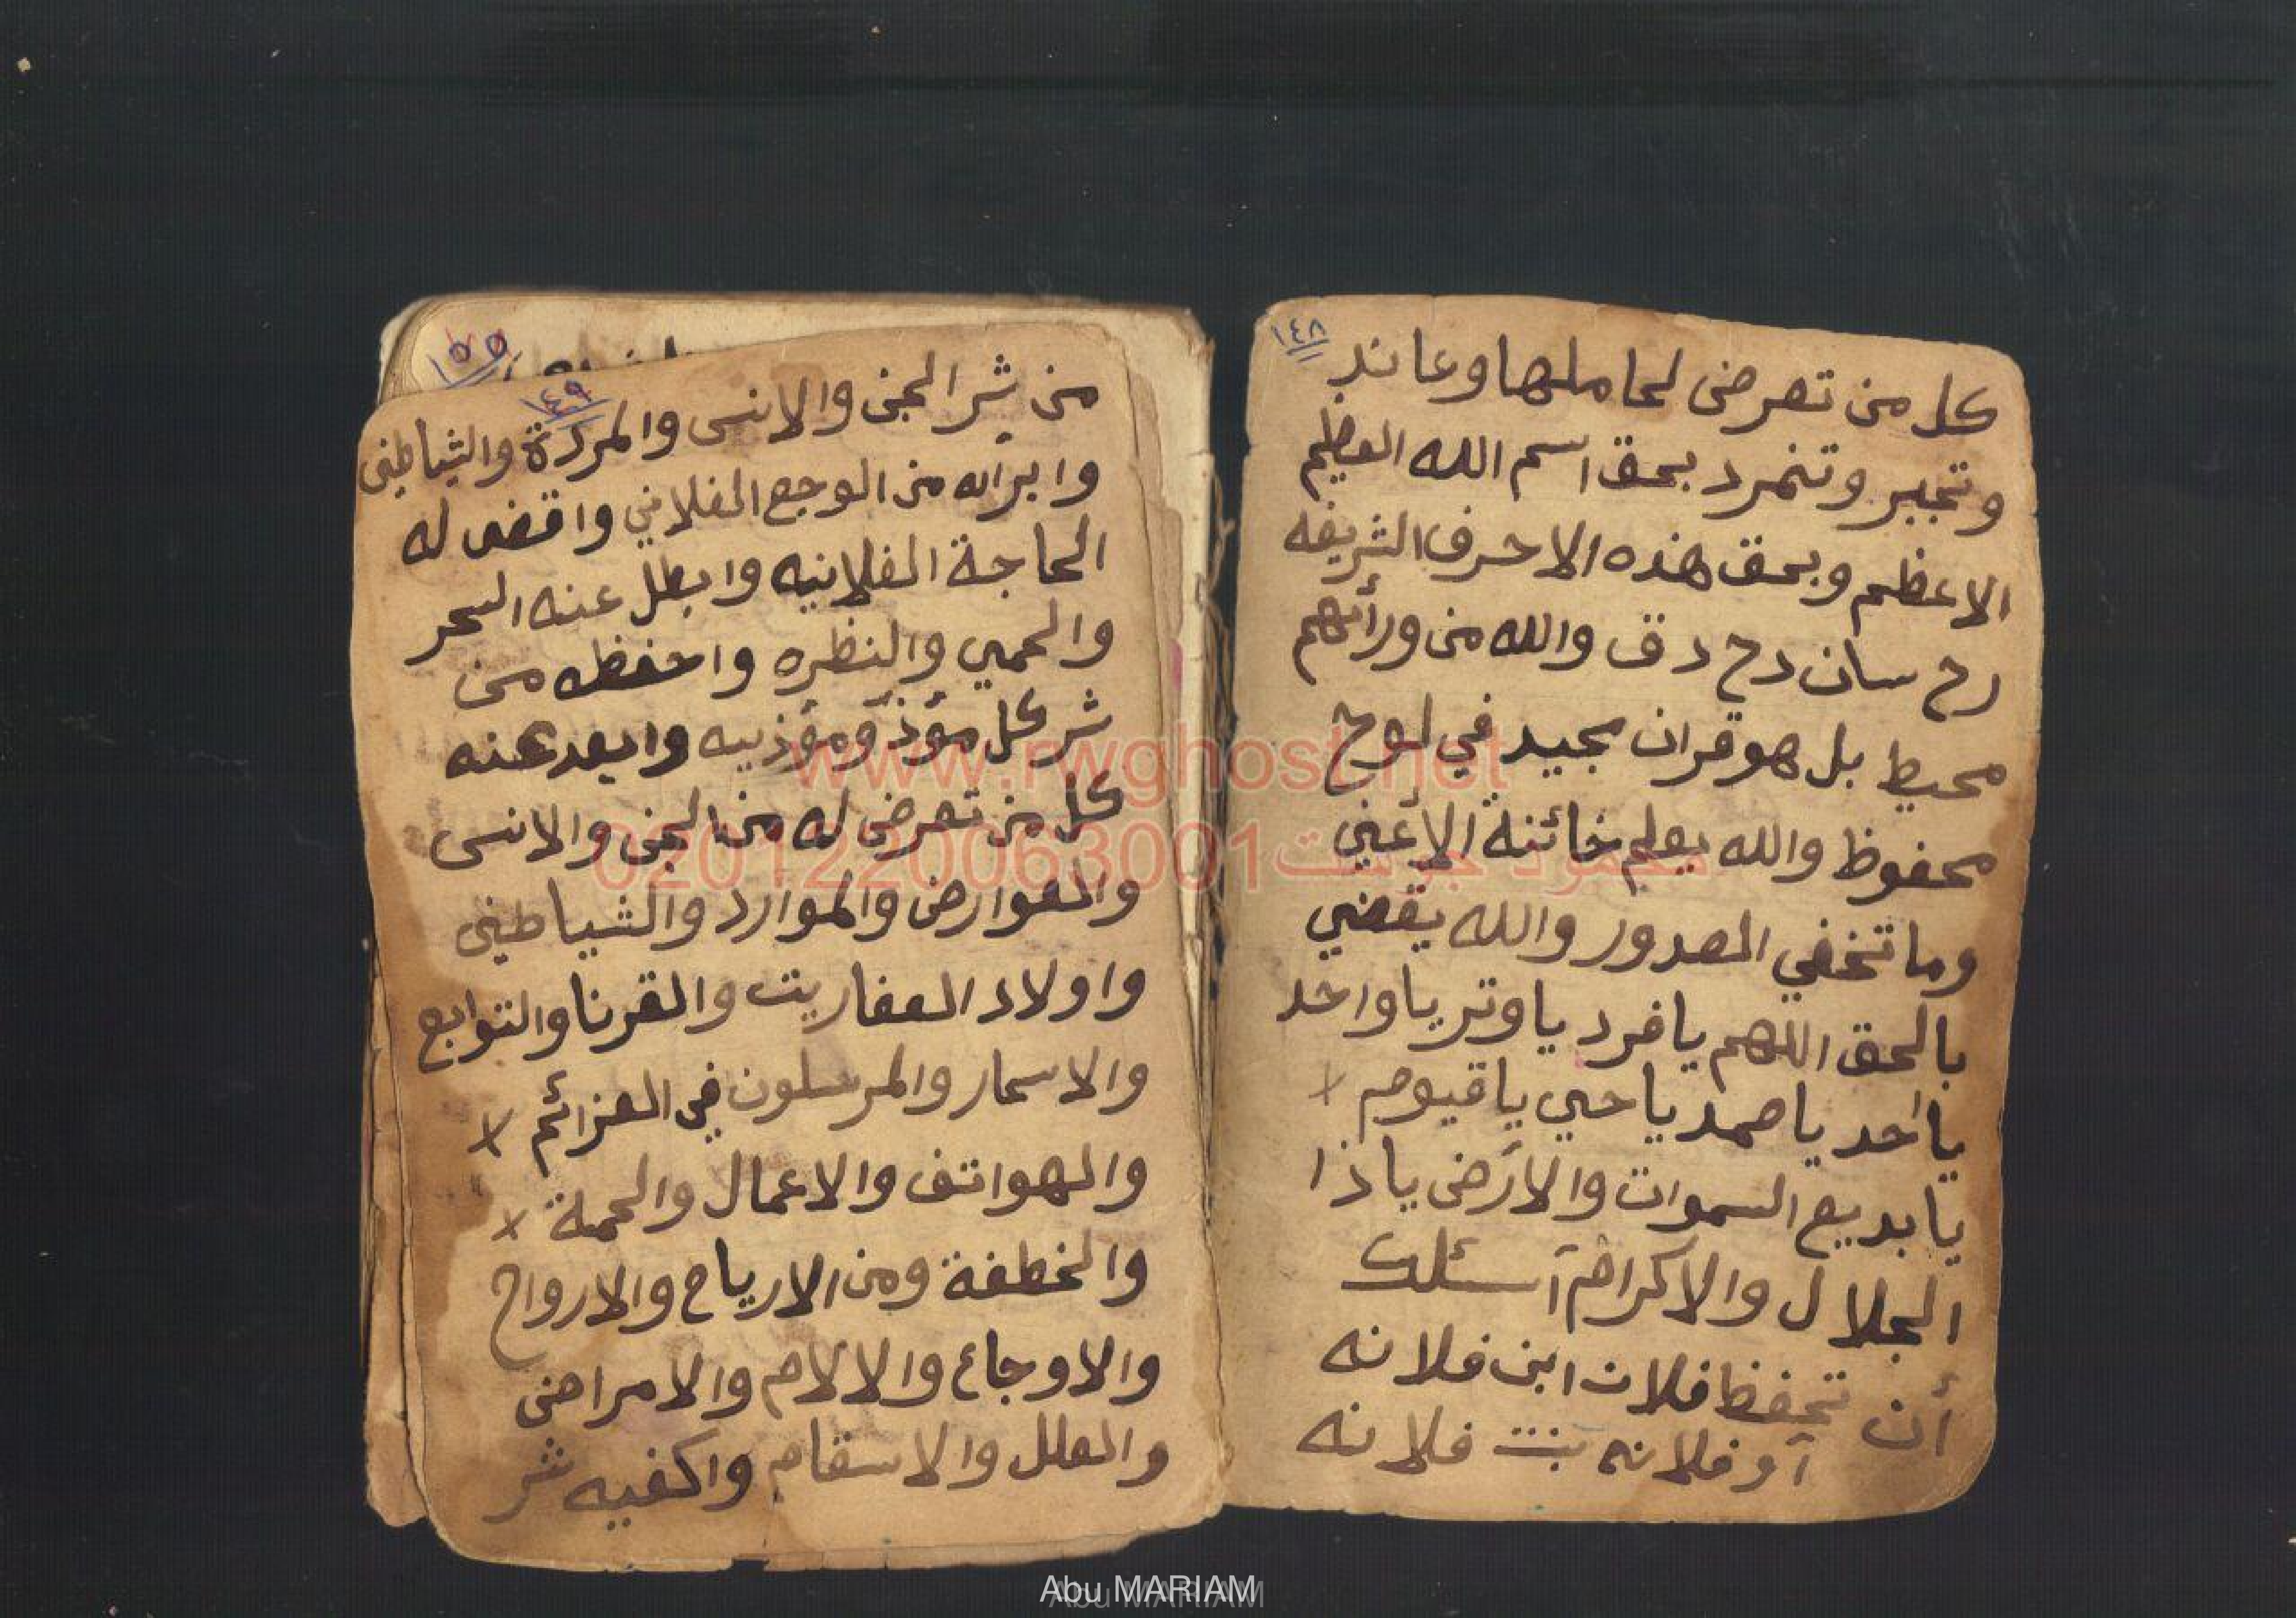 ١٤٨
كل من تعرض لحاملها وعاند
وتجبر وتنمرد بحق اسم الله العظيم
الاعظم وبحق هذه الاحرف الشريفه
رح سان دح د ق والله من ورأئهم
محيط بل هو قران مجيد في لوح
محفوظ والله يعلم خائنة الأعين
وما تخفي الصدور والله يقضي
بالحق اللهم يا فرد يا وتر يا واحد
يا احد يا صمد يا حي يا قيوم ×
يا بديع السموات والارض يا ذا
الجلال والاكرام أسئلك
أن تحفظ فلان ابن فلانه
أو فلانه بنت فلانه
١٥٥
١٤٩
من شر الجن والانس والمردة والشياطين
وابرأه من الوجع الفلاني واقض له
الحاجة الفلانيه وابطل عنه السحر
والحمي والنظره واحفظه من
شر كل مؤذ ومؤذيه وابعد عنه
كل من تعرض له من الجن والانس
والعوارض والموارد والشياطين
واولاد العفاريت والقرنا والتوابع
والاسحار والمرسلون في العزائم ×
والهواتف والاعمال والحملة ×
والخطفة ومن الارياح والارواح
والاوجاع والالام والامراض
والعلل والاسقام واكفيه شر
www.rwghost.net
محمود جوست 0201220063001
Abu MARIAM